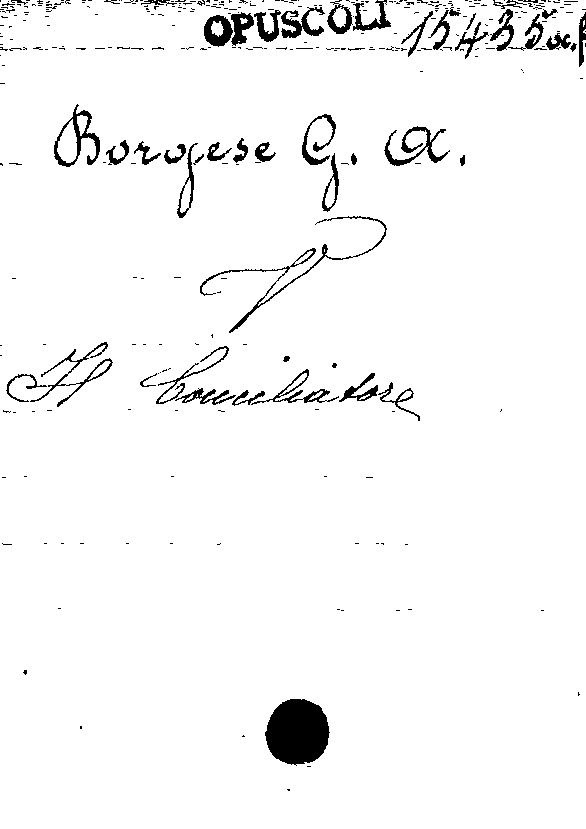 OPUSCOLI 15435
Borgese G. A.
V
Il Conciliatore